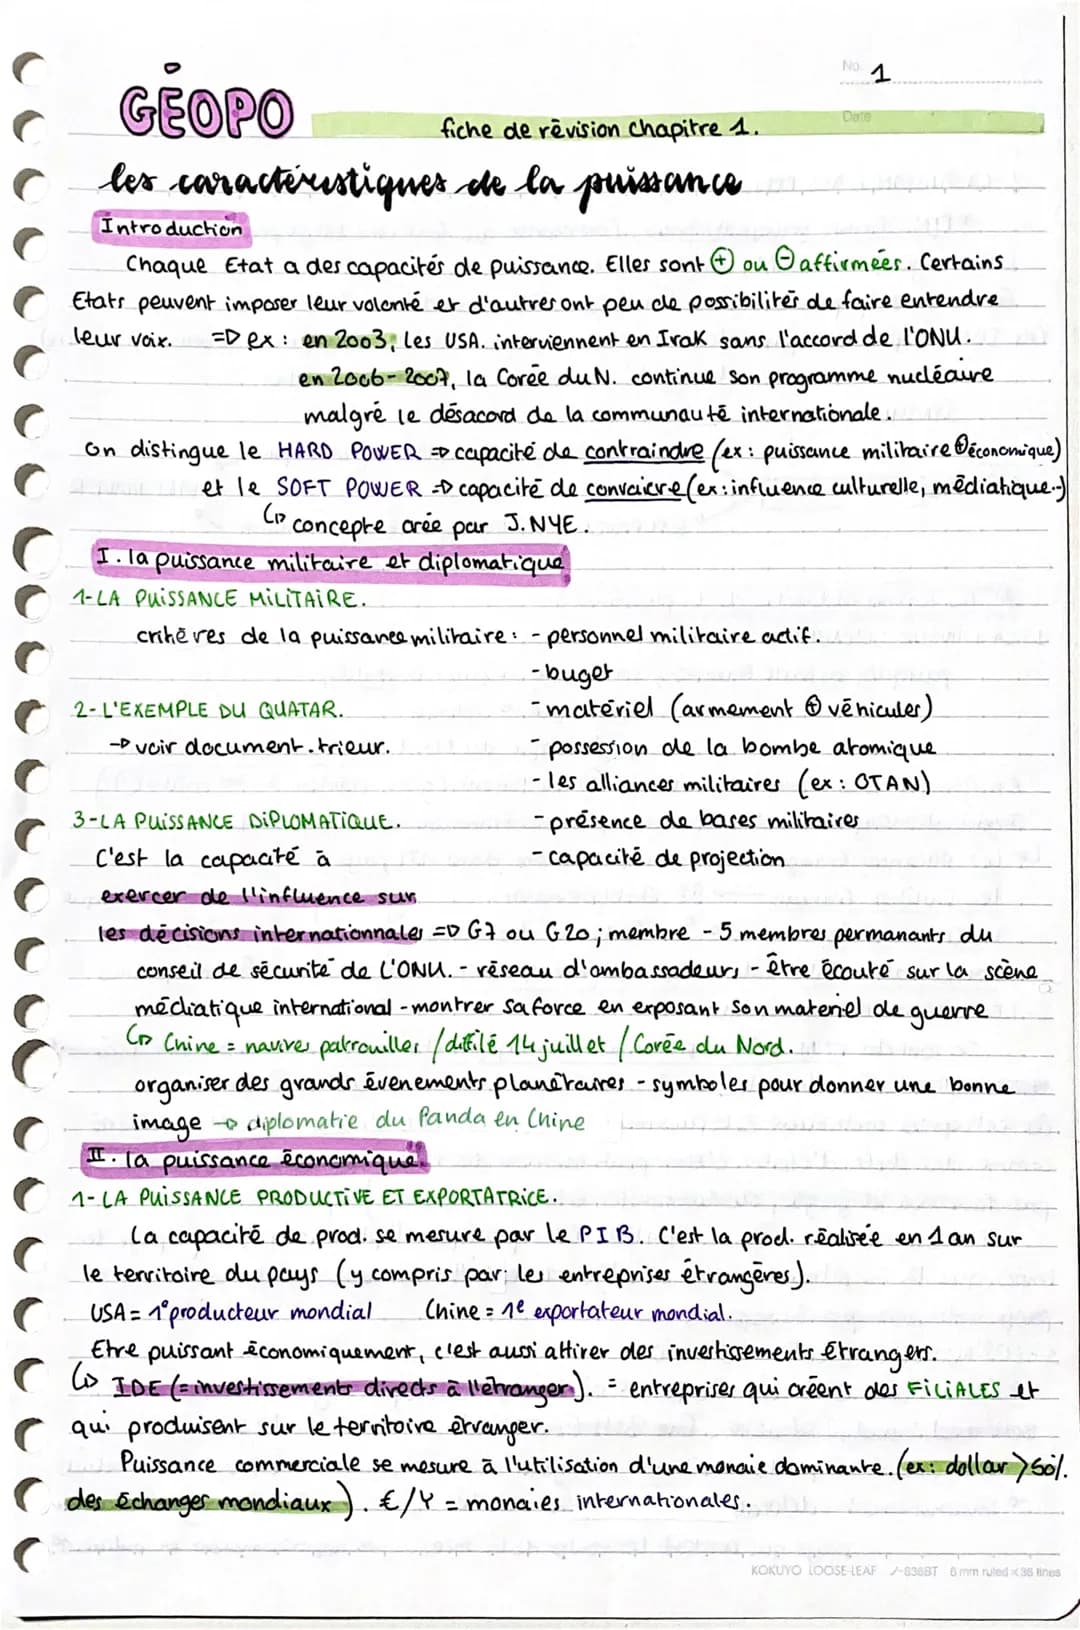 No. 1
GÉOPO
Date
fiche de révision chapitre 1.
les caractéristiques de la puissance
Introduction
Chaque Etat a des capacités de puissance. Elles sont ⊕ ou ⊖ affirmées. Certains
Etats peuvent imposer leur volonté et d'autres ont peu de possibilités de faire entendre
leur voix. => ex : en 2003, les USA. interviennent en Irak sans l'accord de l'ONU.
en 2006-2007, la Corée du N. continue son programme nucléaire
malgré le désacord de la communauté internationale.
On distingue le HARD POWER => capacité de contraindre (ex : puissance militaire ⊕ économique)
et le SOFT POWER => capacité de convaicre (ex : influence culturelle, médiatique..)
↳ concepte crée par J. NYE.
I. la puissance militaire et diplomatique
1-LA PUISSANCE MILITAIRE.
critères de la puissance militaire : - personnel militaire actif.
- buget
2- L'EXEMPLE DU QUATAR.
- matériel (armement ⊕ véhicules)
→ voir document. trieur.
- possession de la bombe atomique
- les alliances militaires (ex : OTAN)
3-LA PUISSANCE DIPLOMATIQUE.
- présence de bases militaires
C'est la capacité à
- capacité de projection
exercer de l'influence sur
les décisions internationnales => G7 ou G20 ; membre - 5 membres permanants du
conseil de sécurité de L'ONU. - réseau d'ambassadeurs - être écouté sur la scène
médiatique international - montrer sa force en exposant son materiel de guerre
↳ Chine = navires patrouilles / défilé 14 juillet / Corée du Nord.
organiser des grands évenements planétaires - symboles pour donner une bonne
image → diplomatie du Panda en Chine
II. la puissance économique.
1- LA PUISSANCE PRODUCTIVE ET EXPORTATRICE.
La capacité de prod. se mesure par le PIB. C'est la prod. réalisée en 1 an sur
le territoire du pays (y compris par les entreprises étrangères).
USA = 1° producteur mondial Chine = 1e exportateur mondial.
Etre puissant économiquement, c'est aussi attirer des investissements étrangers.
↳ IDE (= investissements directs à l'étranger). = entreprises qui créent des FILIALES et
qui produisent sur le territoire étranger.
Puissance commerciale se mesure à l'utilisation d'une monaie dominante. (ex : dollar > 50%.
des échanges mondiaux). €/Y = monaies internationales.
KOKUYO LOOSE-LEAF ノ-836BT 6 mm ruled × 36 lines